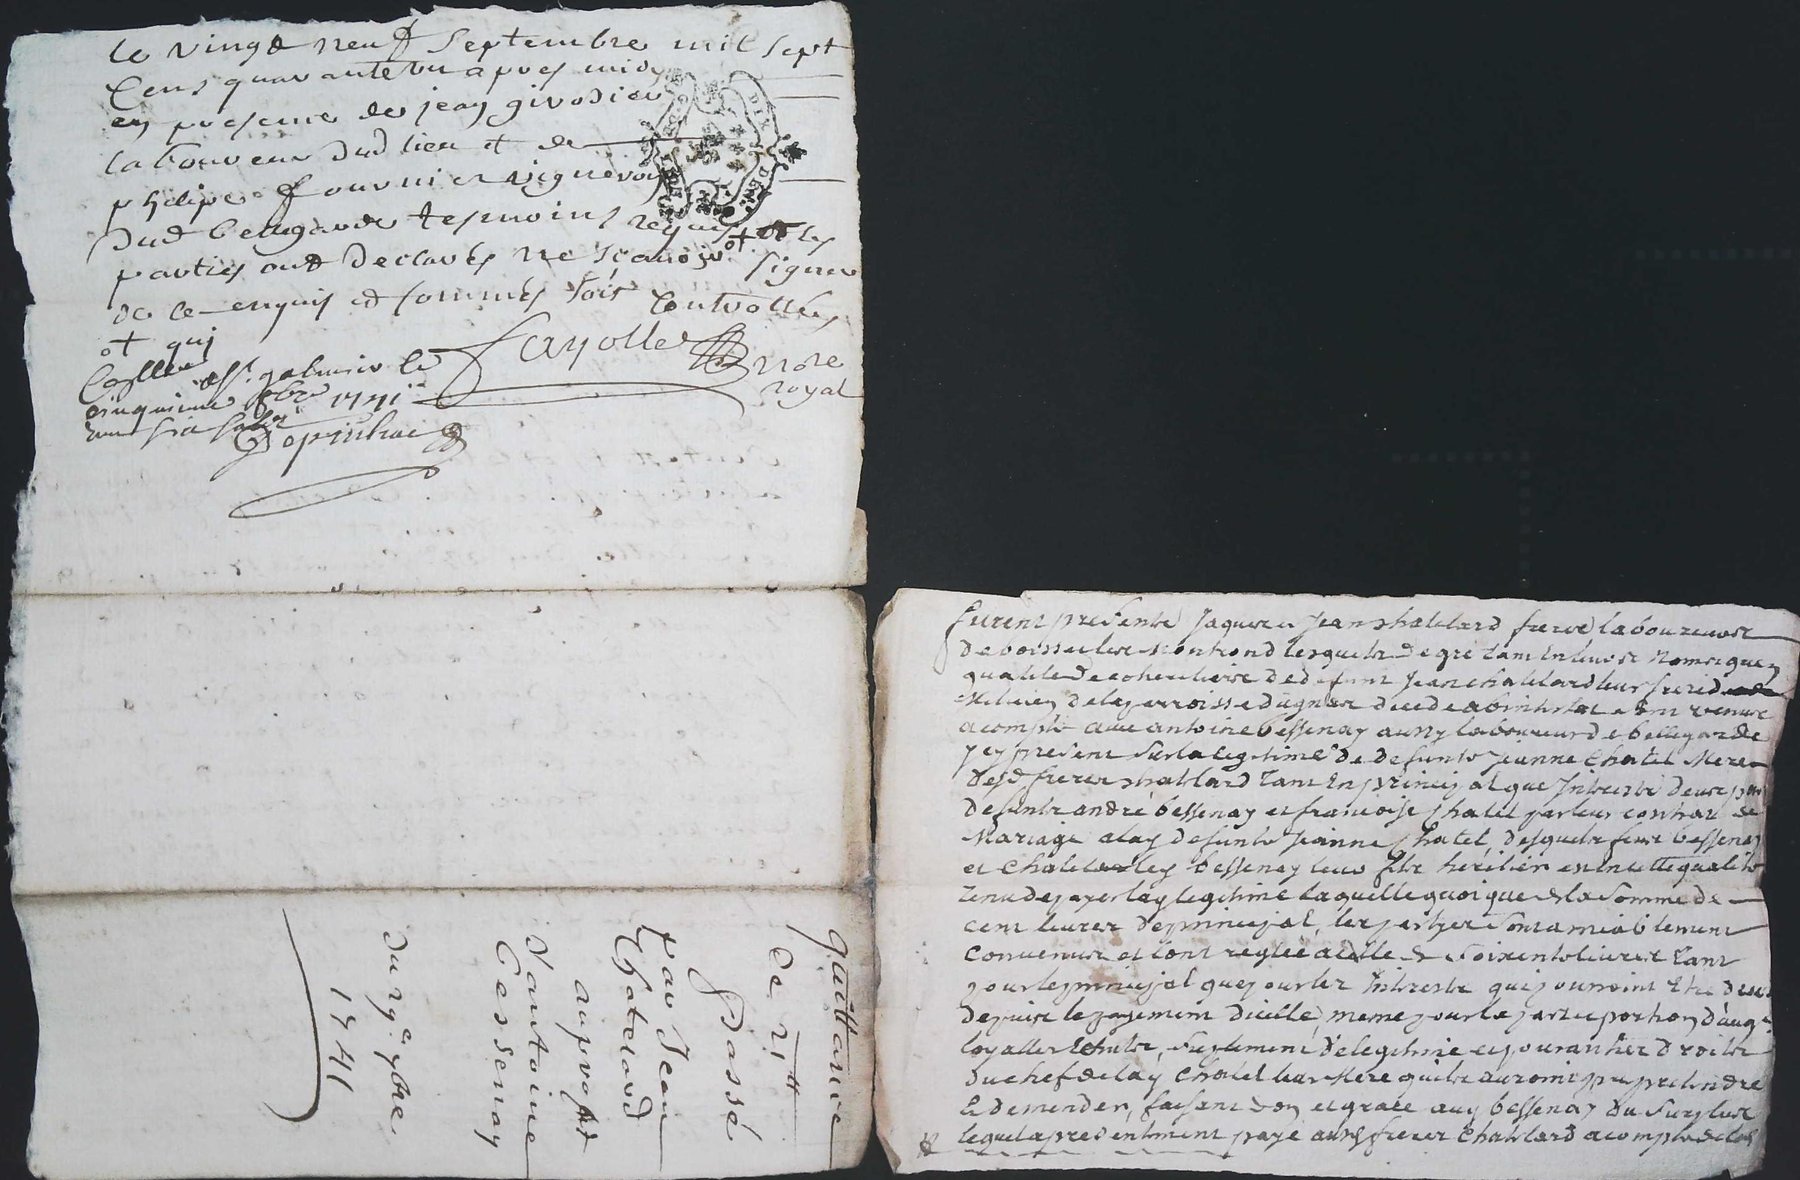 le vingt neuf Septembre mil sept
Cens quarante un apres midy
en presence de jean girodier
laboureur dud lieu et de
philipe fournier vigneron
dud bellegarde tesmoins requis et les
parties ont declarés ne scavoir signer
de ce enquis et sommés soit Controllés
et qui
fayolle nore
royal
a st galmier le
cinquieme 8bre 1741
quittance
de 21tt
Passé
par Jean
Chatelard
au profit
d'antoine
Bessenay
du 29e 7bre
1741
furent presents Jaques et Jean chatelard freres laboureurs
de boisset les Montrond lesquels de gre tant en leurs noms que en
qualité de coheritiers de defunt Jean chatelard leur frere
de la parroisse
a compte avec antoine bessenay aussy laboureur de bellegarde
icy present sur la legitime de defunte jeanne Chatel Mere
desd freres chatelard tant en principal que interests deue par
defunts andré bessenay et francoise chatel par leur contrat de
Mariage a lad defunte jeanne Chatel, desquels feus bessenay
et Chatel led bessenay leur fils heritier est en cette qualité
tenu de payer lad legitime laquelle quoique de la somme de
cent livres de principal, les parties sont amiablement
convenues et l'ont reglée a celle de soixente livres tant
pour le principal que pour les interests qui pourroint etre deus
depuis le payement d'icelle, meme pour la part et portion d'aug
suplement de legitime et pour autres droits
du chef de lad Chatel leur Mere qu'ils auroint pu pretendre
et demender, faisant don et grace aud bessenay du surplus
lequel a presentement payé auxd freres Chatelard a compte de lad